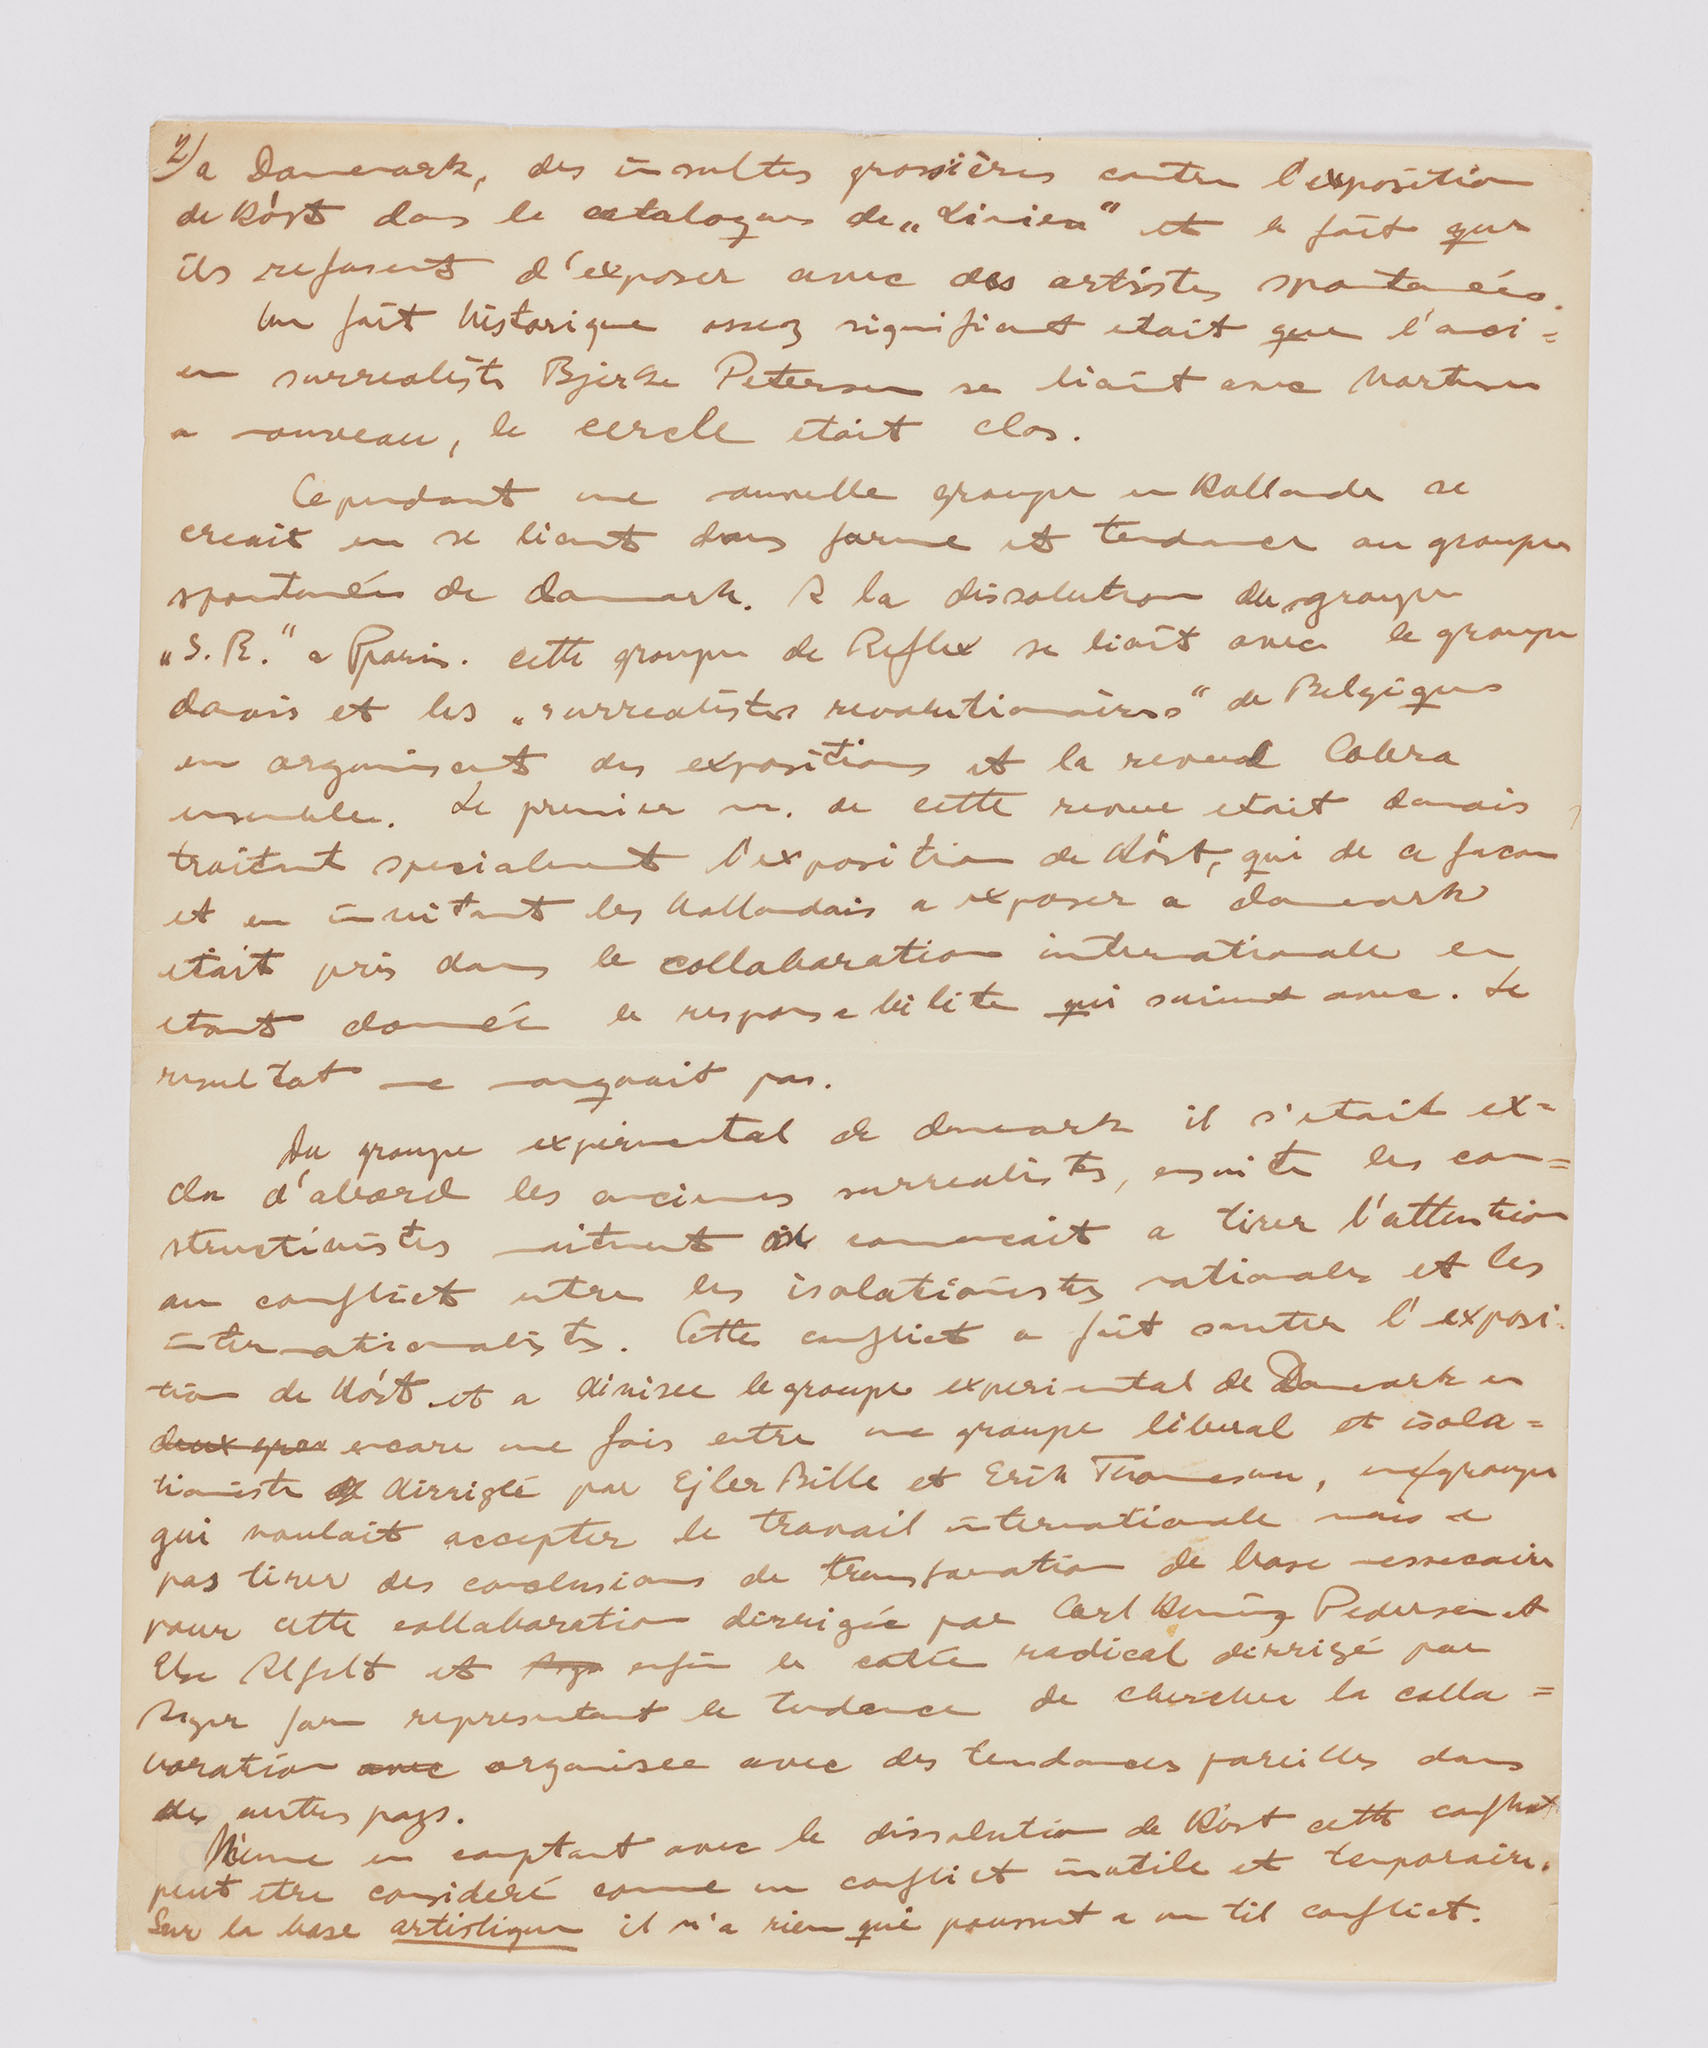 2/ a Danemark, des insultes grossières contre l'exposition
de Höst dans le catalogue de „Linien“ et le fait que
ils refusent d'exposer avec des artistes spontanées.
Un fait historique assez signifiant etait que l'anci=
en surrealiste Bjerke Petersen se liait avec Mortensen
a nouveau, le cercle etait clos.
Cependant une nouvelle groupe en Hollande se
creait en se liant dans forme et tendance au groupe
spontanée de danmark. A la dissolution du groupe
„S. R.“ a Paris. cette groupe de Reflex se liait avec le groupe
danois et les „surrealistes revolutionaires“ de Belgique
en organisant des expositions et la revue Cobra
ensemble. Le premier nr. de cette revue etait danois
traitant specialement l'exposition de Höst, qui de ce facon
et en invitant les hollandais a exposer a danemark
etait pris dans le collaboration internationale en
etant donnée le responsabilite qui suivent avec. Le
resultat ne manquait pas.
Du groupe experimental de danemark il s'etait ex=
clu d'abord les anciennes surrealistes, ensuite les con=
structivistes maitenent il comencait a tirer l'attention
au conflict entre les isolationistes nationale et les
internationalistes. Cette conflict a fait sauter l'exposi-
tion de Höst et a divisee le groupe experimental de Danemark en
deux encore une fois entre une groupe liberal et isola=
tioniste dirrigée par Ejler Bille et Erik Thomesen, une groupe
qui voulait accepter le travail internationale mais ne
pas tirer des conclusions de transformation de base nessecaire
pour cette collaboration dirrigée par Carl Henning Pedersen et
Else Alfelt et enfin le cotée radical dirrigé par
Asger Jorn representant le tendence de chercher la colla=
boration avec organisee avec des tendances pareilles dans
des autres pays.
Même en comptant avec le dissolution de Höst cette conflict
peut etre consideré comme un conflict inutile et temporaire.
Sur la base artistique il n'a rien qui poussent a un til conflict.